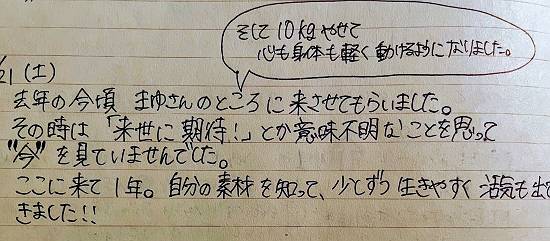 そして10kgやせて
心も身体も軽く動けるようになりました。
/21(土)
去年の今頃 まゆさんのところに来させてもらいました。
その時は「来世に期待!」とか意味不明なことを思って
"今"を見ていませんでした。
ここに来て1年。自分の素材を知って、少しずつ生きやすく活気も出て
きました!!